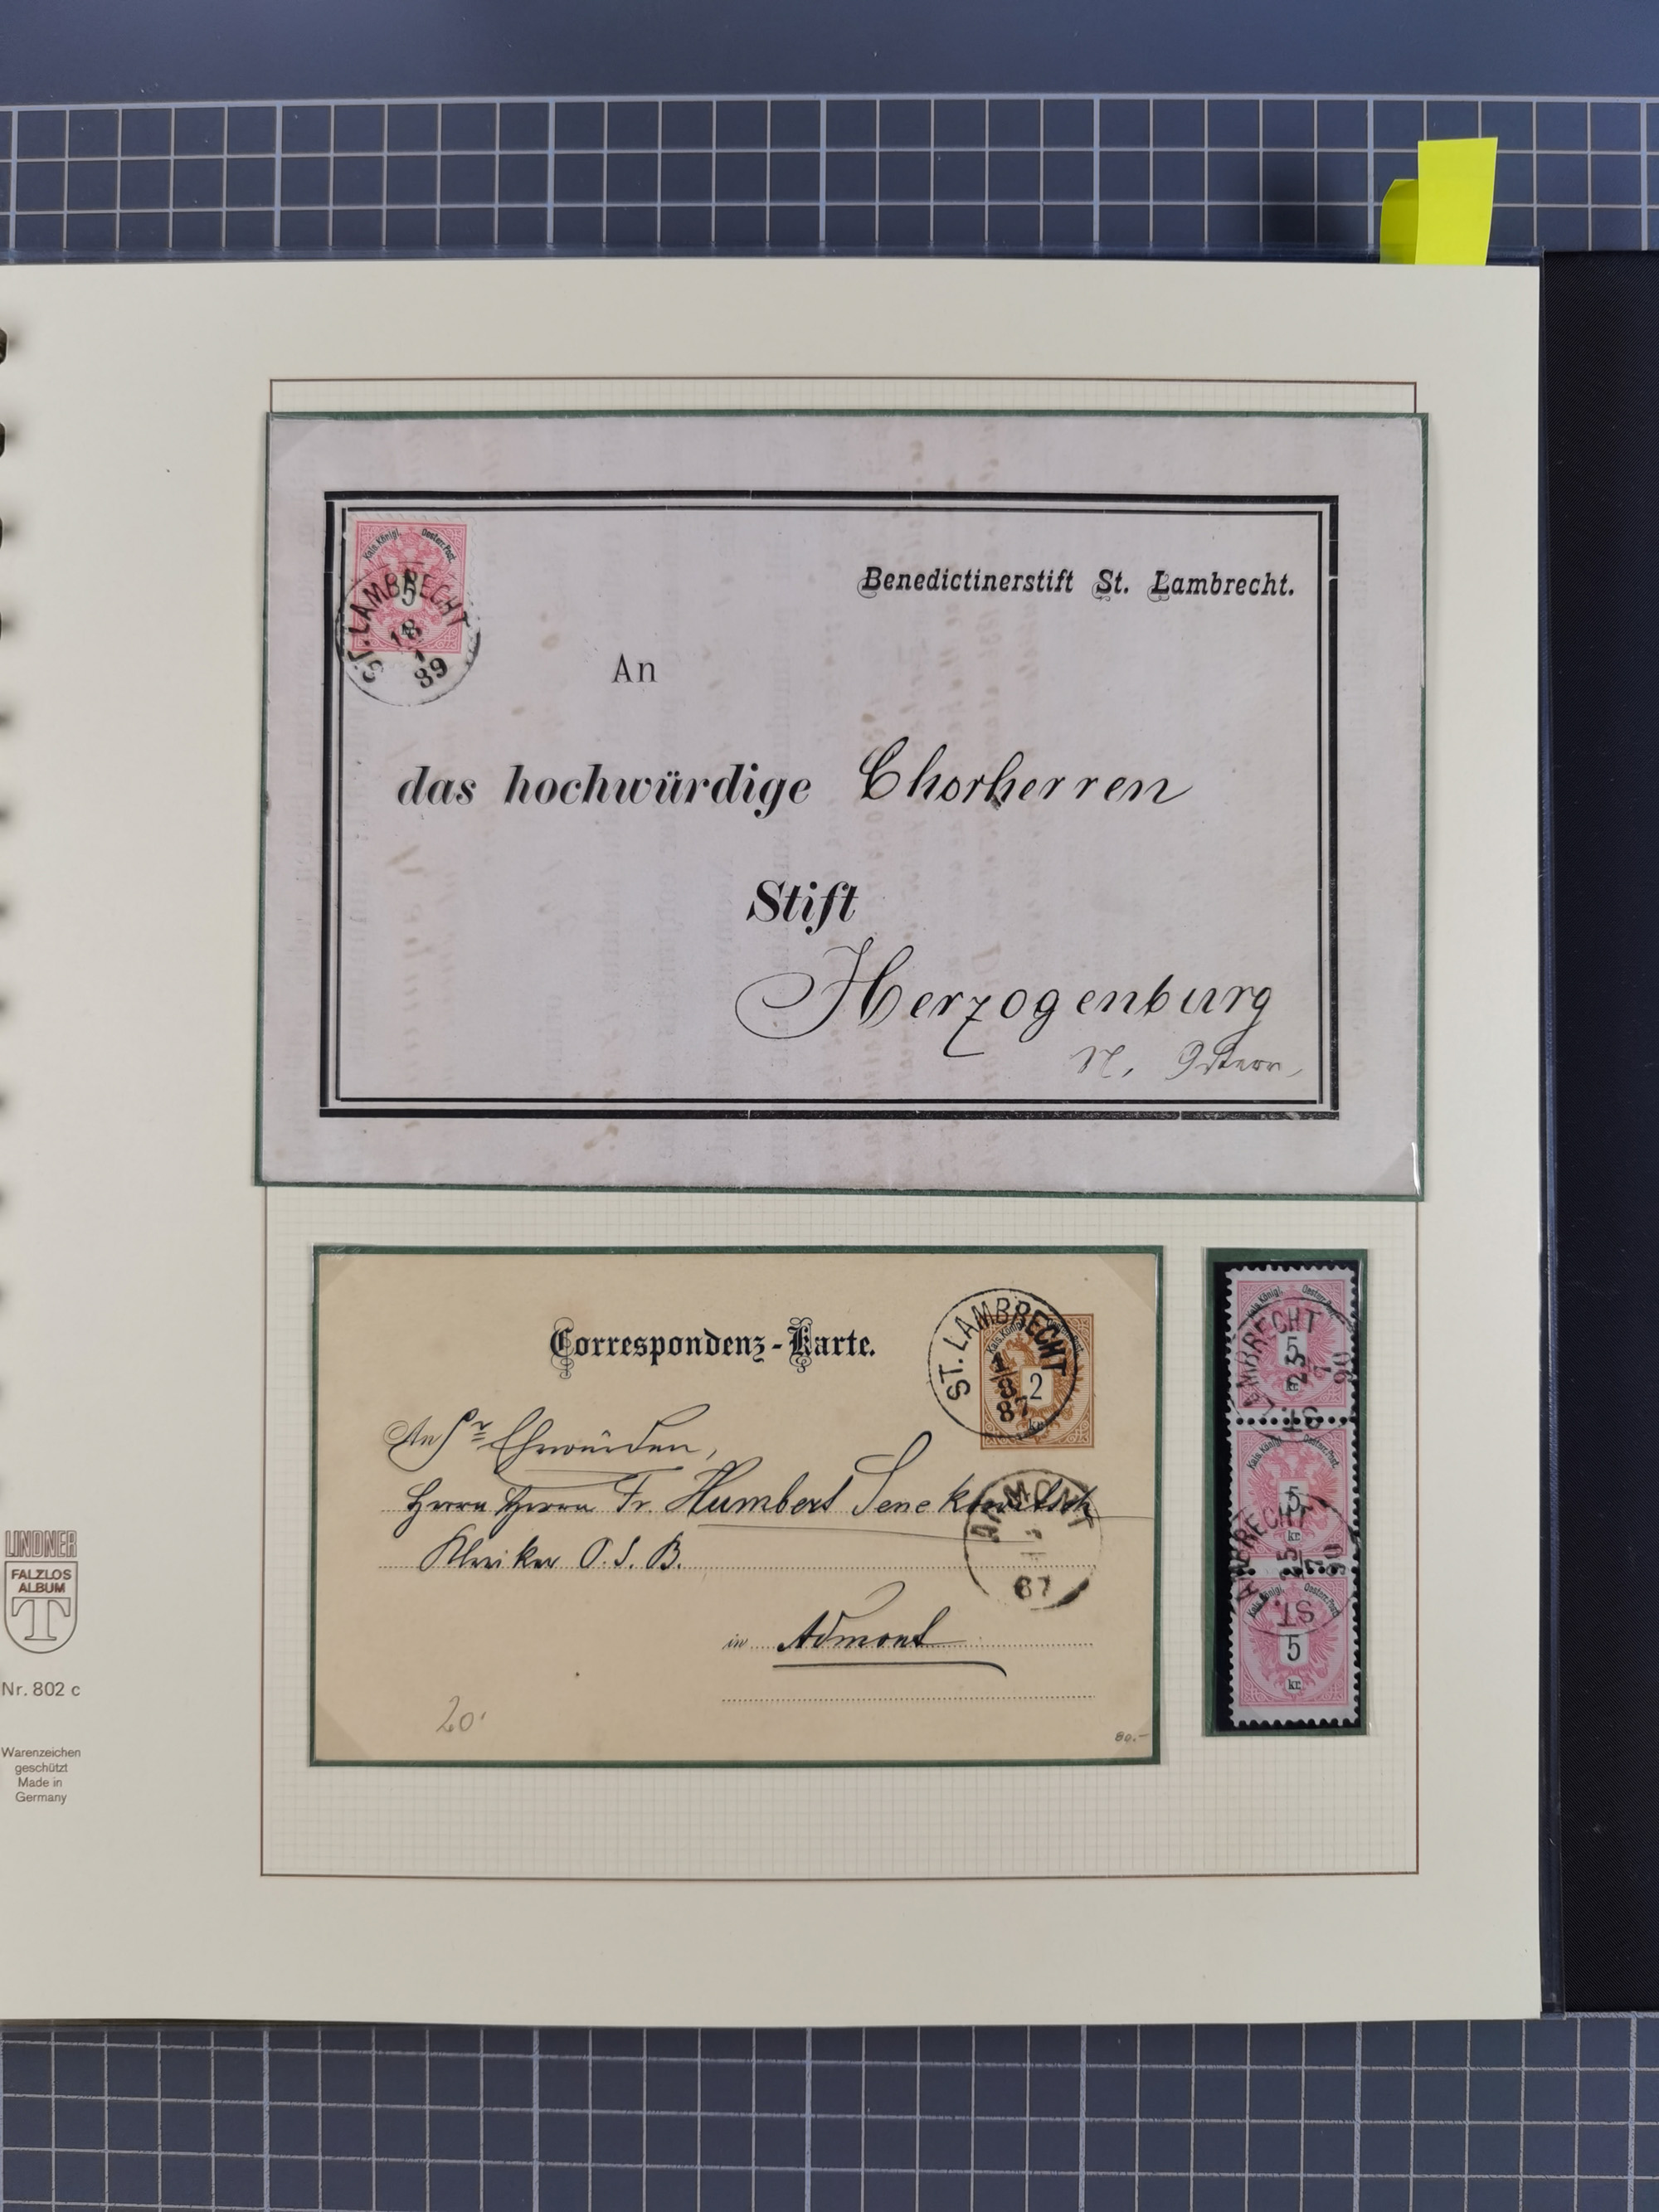 Kais. Königl. Oesterr. Post.
5
kr.
ST. LAMBRECHT
18
1
89
Benedictinerstift St. Lambrecht.
An
das hochwürdige Chorherren
Stift
Herzogenburg
Correspondenz-Karte.
Kais. Königl. Oesterr. Post.
2
kr.
ST. LAMBRECHT
8
87
An Sr Ehrwürden,
Herrn Herrn Fr. Humbert Senekowitsch
Kleriker O. S. B.
in Admont
ADMONT
87
20
80.-
Kais. Königl. Oesterr. Post.
5
kr.
ST. LAMBRECHT
25
7
90
Kais. Königl. Oesterr. Post.
5
kr.
ST. LAMBRECHT
25
7
90
Kais. Königl. Oesterr. Post.
5
kr.
LINDNER
FALZLOS
ALBUM
T
Nr. 802 c
Warenzeichen
geschützt
Made in
Germany